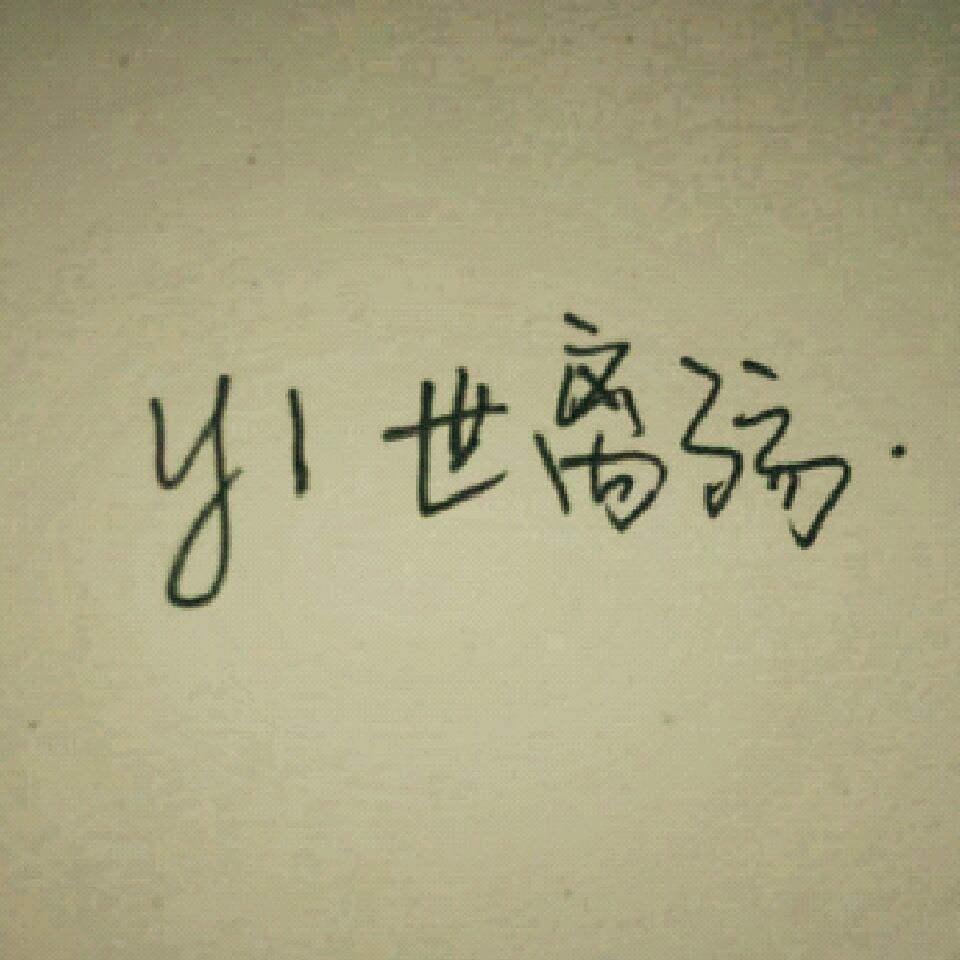 y1世离殇.